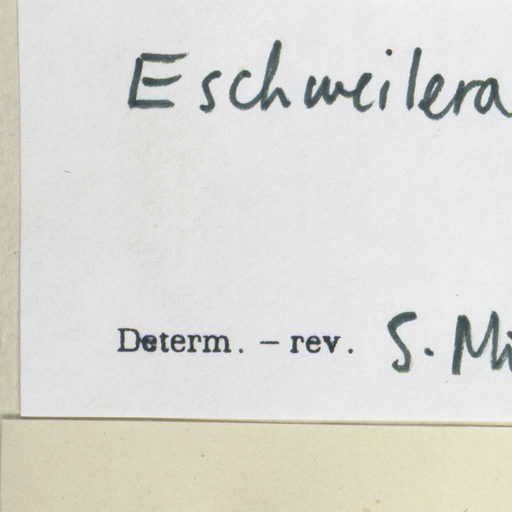 Eschweilera
Determ. – rev. S. Mi